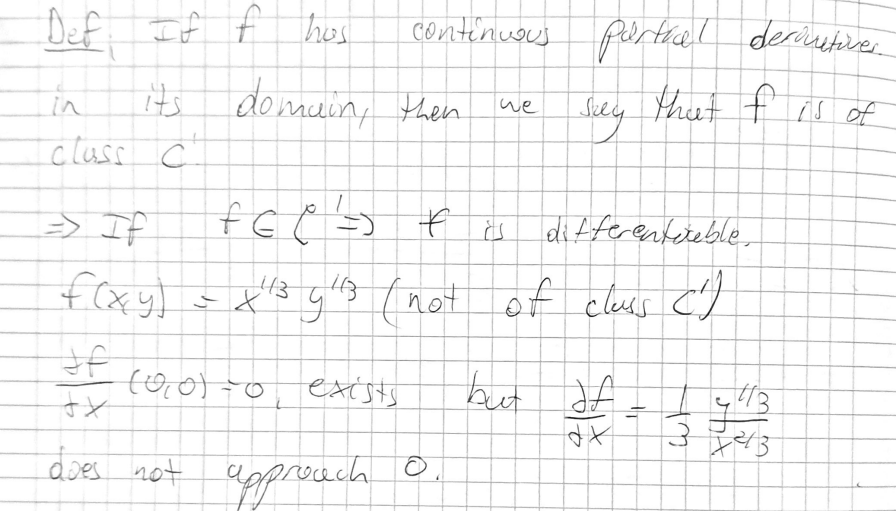 Def, If f has continuous partial derivatives
in its domain, then we say that f is of
class C¹
⇒ If f ∈ C¹ ⇒ f is differentiable.
f(x,y) = x^{1/3} y^{1/3} (not of class C¹)
∂f/∂x (0,0) = 0, exists but ∂f/∂x = 1/3 y^{1/3}/x^{2/3}
does not approach 0.